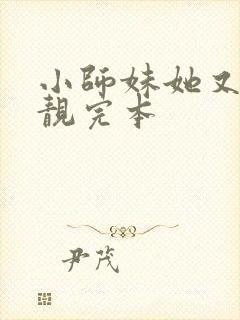 小師妹她又
靚完本
尹茂